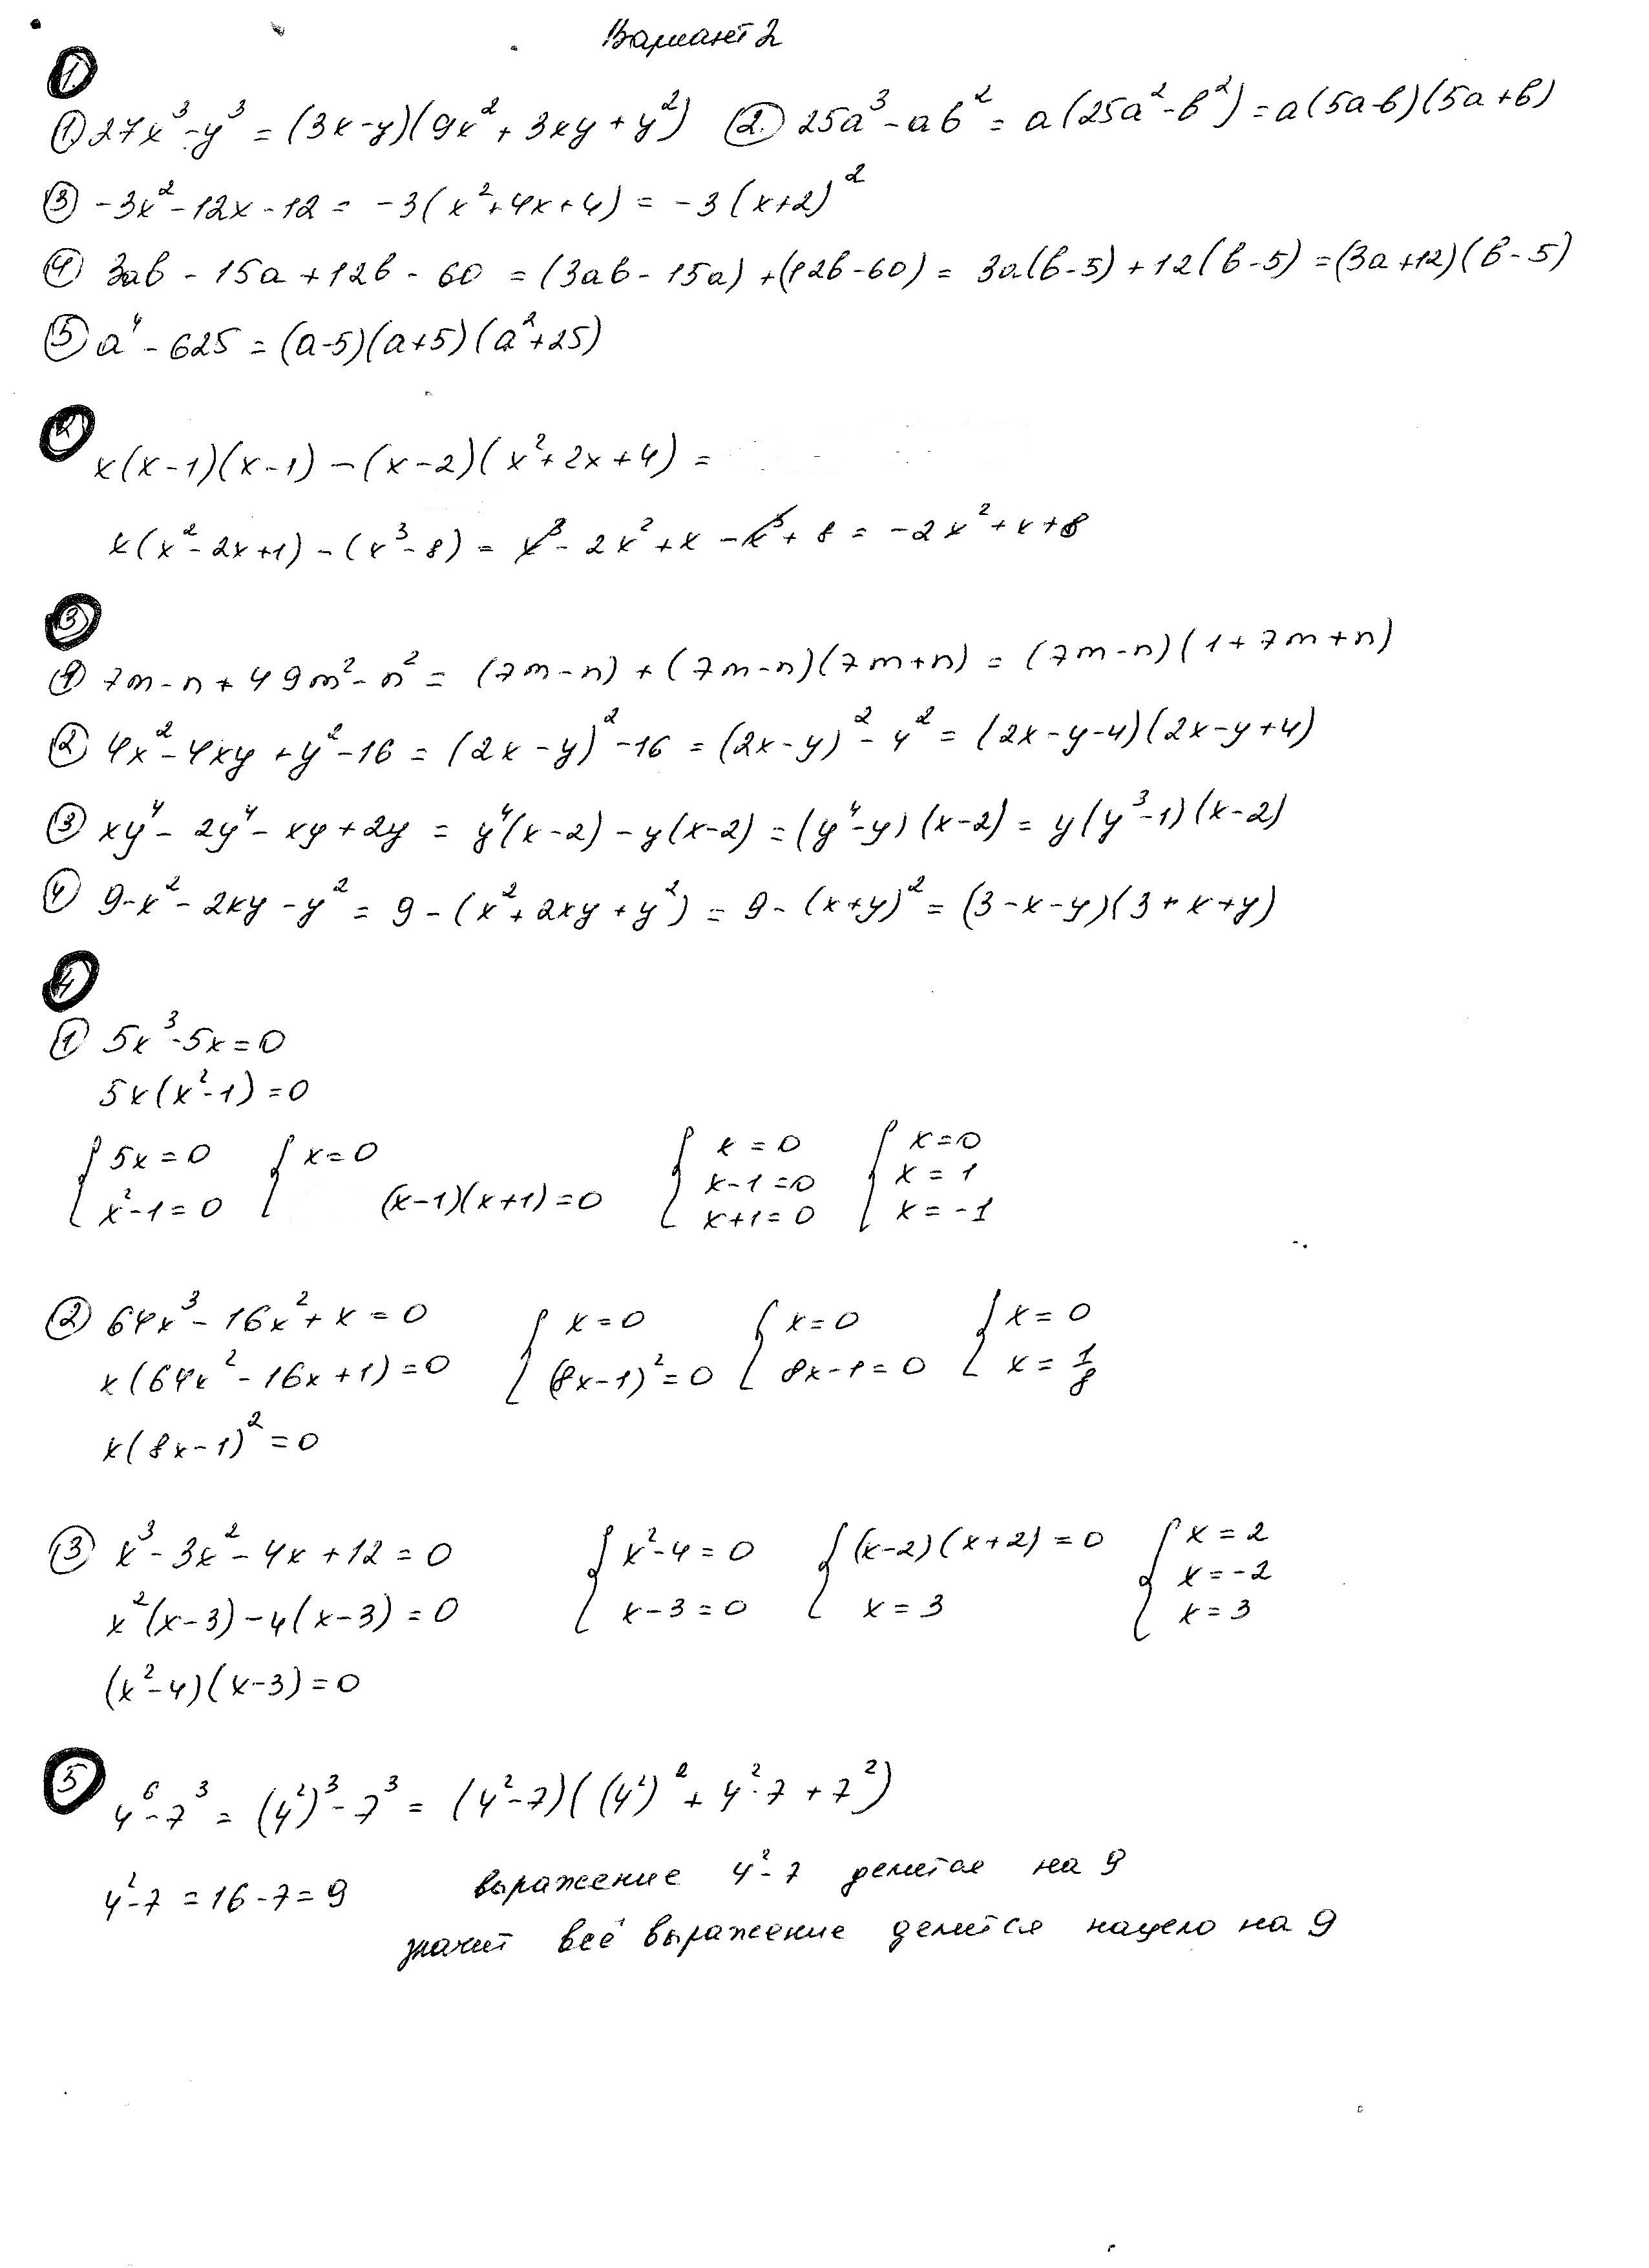 Вариант 2
1.
1. 27x³-y³ = (3x-y)(9x²+3xy+y²) 2. 25a³-ab² = a(25a²-b²) = a(5a-b)(5a+b)
3 -3x²-12x-12 = -3(x²+4x+4) = -3(x+2)²
4 3ab-15a+12b-60 = (3ab-15a)+(12b-60) = 3a(b-5)+12(b-5) = (3a+12)(b-5)
5 a⁴-625 = (a-5)(a+5)(a²+25)
2
x(x-1)(x-1)-(x-2)(x²+2x+4) =
x(x²-2x+1)-(x³-8) = x³-2x²+x-x³+8 = -2x²+x+8
3
1 7m-n+49m²-n² = (7m-n)+(7m-n)(7m+n) = (7m-n)(1+7m+n)
2 4x²-4xy+y²-16 = (2x-y)²-16 = (2x-y)²-4² = (2x-y-4)(2x-y+4)
3 xy⁴-2y⁴-xy+2y = y⁴(x-2)-y(x-2) = (y⁴-y)(x-2) = y(y³-1)(x-2)
4 9-x²-2xy-y² = 9-(x²+2xy+y²) = 9-(x+y)² = (3-x-y)(3+x+y)
4
1 5x³-5x=0
5x(x²-1)=0
{ 5x=0 { x=0 { x=0 { x=0
x-1=0 x=1
x²-1=0 (x-1)(x+1)=0 x+1=0 x=-1
2 64x³-16x²+x=0 { x=0 { x=0 { x=0
x(64x²-16x+1)=0 (8x-1)²=0 8x-1=0 x=1/8
x(8x-1)²=0
3 x³-3x²-4x+12=0 { x²-4=0 { (x-2)(x+2)=0 { x=2
x=-2
x²(x-3)-4(x-3)=0 x-3=0 x=3 x=3
(x²-4)(x-3)=0
5
4⁶-7³ = (4²)³-7³ = (4²-7)((4²)²+4²·7+7²)
4²-7=16-7=9 выражение 4²-7 делится на 9
значит всё выражение делится нацело на 9